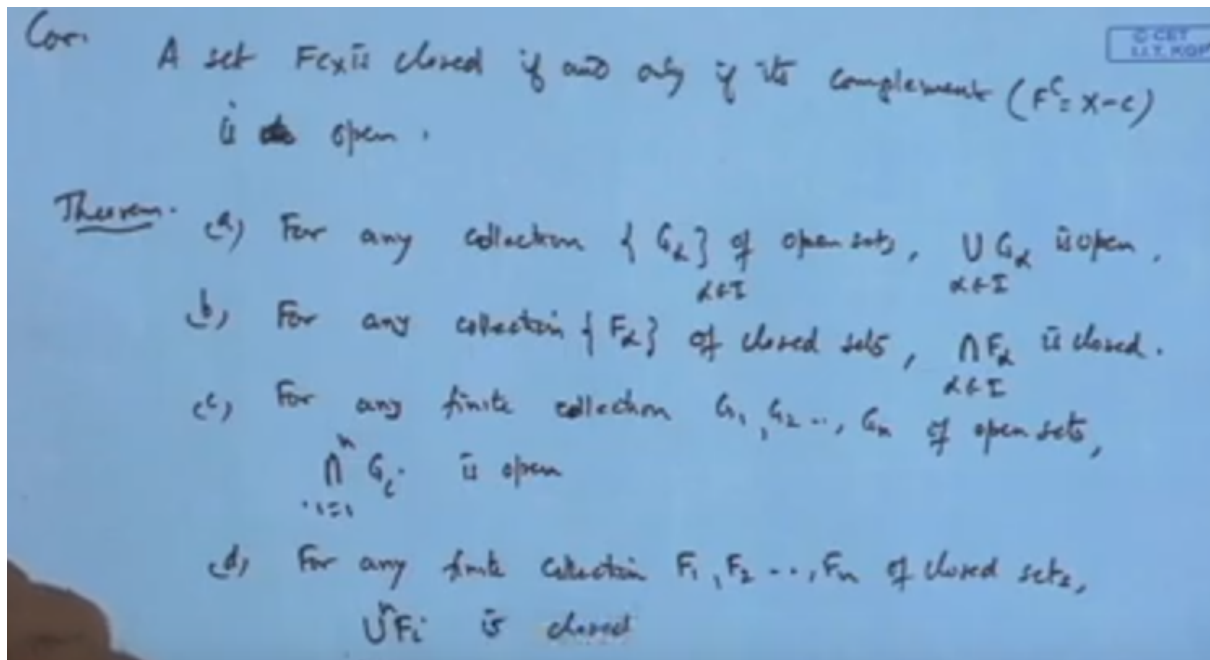 Cor.
© CET
I.I.T. KGP
A set F⊂X is closed if and only if its complement (Fᶜ = X-C)
is open.
Theorem. (a) For any collection {G_α} of open sets, ∪ G_α is open.
α∈I α∈I
(b) For any collection {F_α} of closed sets, ∩ F_α is closed.
α∈I
(c) For any finite collection G₁, G₂ .., Gₙ of open sets,
n
∩ Gᵢ is open
i=1
(d) For any finite collection F₁, F₂ ..., Fₙ of closed sets,
n
∪ Fᵢ is closed